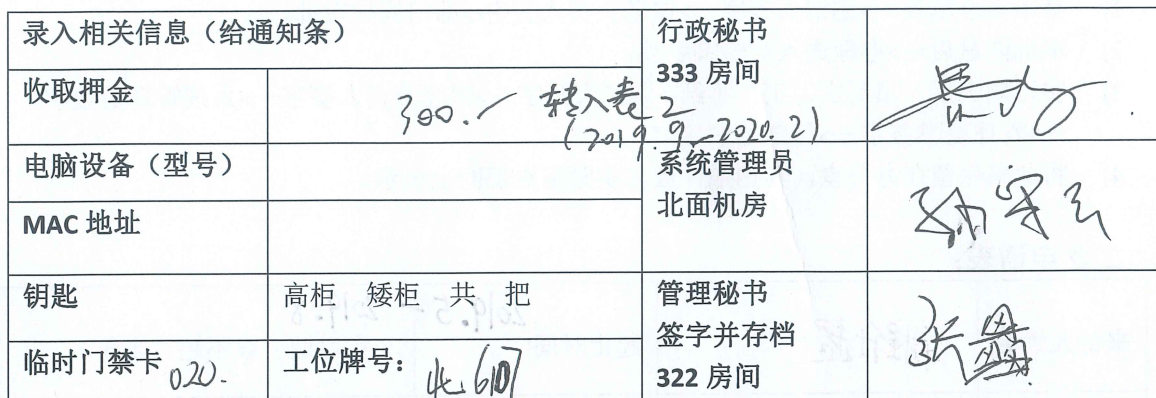 录入相关信息（给通知条）
行政秘书
333 房间
收取押金
300.- 转入表2
(2019.9-2020.2)
电脑设备（型号）
系统管理员
北面机房
MAC 地址
钥匙
高柜 矮柜 共 把
管理秘书
签字并存档
322 房间
临时门禁卡 020.
工位牌号：